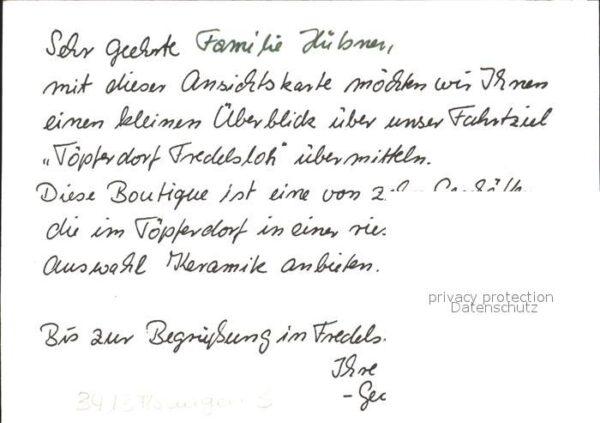 Sehr geehrte Familie Hübner,
mit dieser Ansichtskarte möchten wir Ihnen
einen kleinen Überblick über unser Fahrtziel
„Töpferdorf Fredelsloh" übermitteln.
Diese Boutique ist eine von
die im Töpferdorf in einer
Auswahl Keramik anbieten.
privacy protection
Datenschutz
Bis zur Begrüßung in Fredels
Ihre